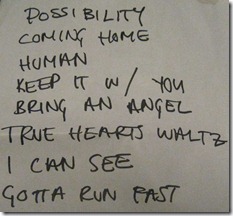 POSSIBILITY
COMING HOME
HUMAN
KEEP IT W/ YOU
BRING AN ANGEL
TRUE HEARTS WALTZ
I CAN SEE
GOTTA RUN FAST